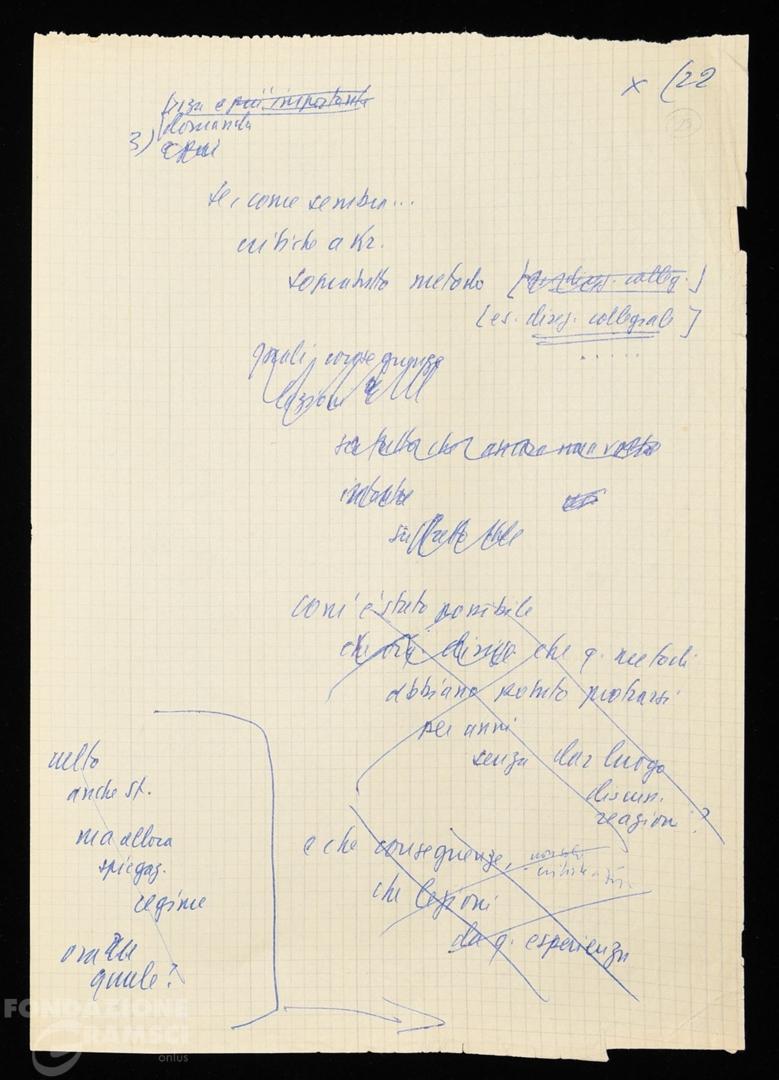 x (22
19
terza e più importante
domanda
3) e più
se, come sembra...
critiche a Kr.
sopratutto metodo [es. direz. colleg.]
[es. direz. collegiale]
.....
quali conseguenze
lezioni
intanto
com'è stato possibile
che q. metodi
abbiano potuto protrarsi
per anni
senza dar luogo
discuss.
reazioni?
e che conseguenze,
che lezioni
da q. esperienza
nello
anche St.
ma allora
spiegaz.
regime
ora
quale?
FONDAZIONE
GRAMSCI
onlus